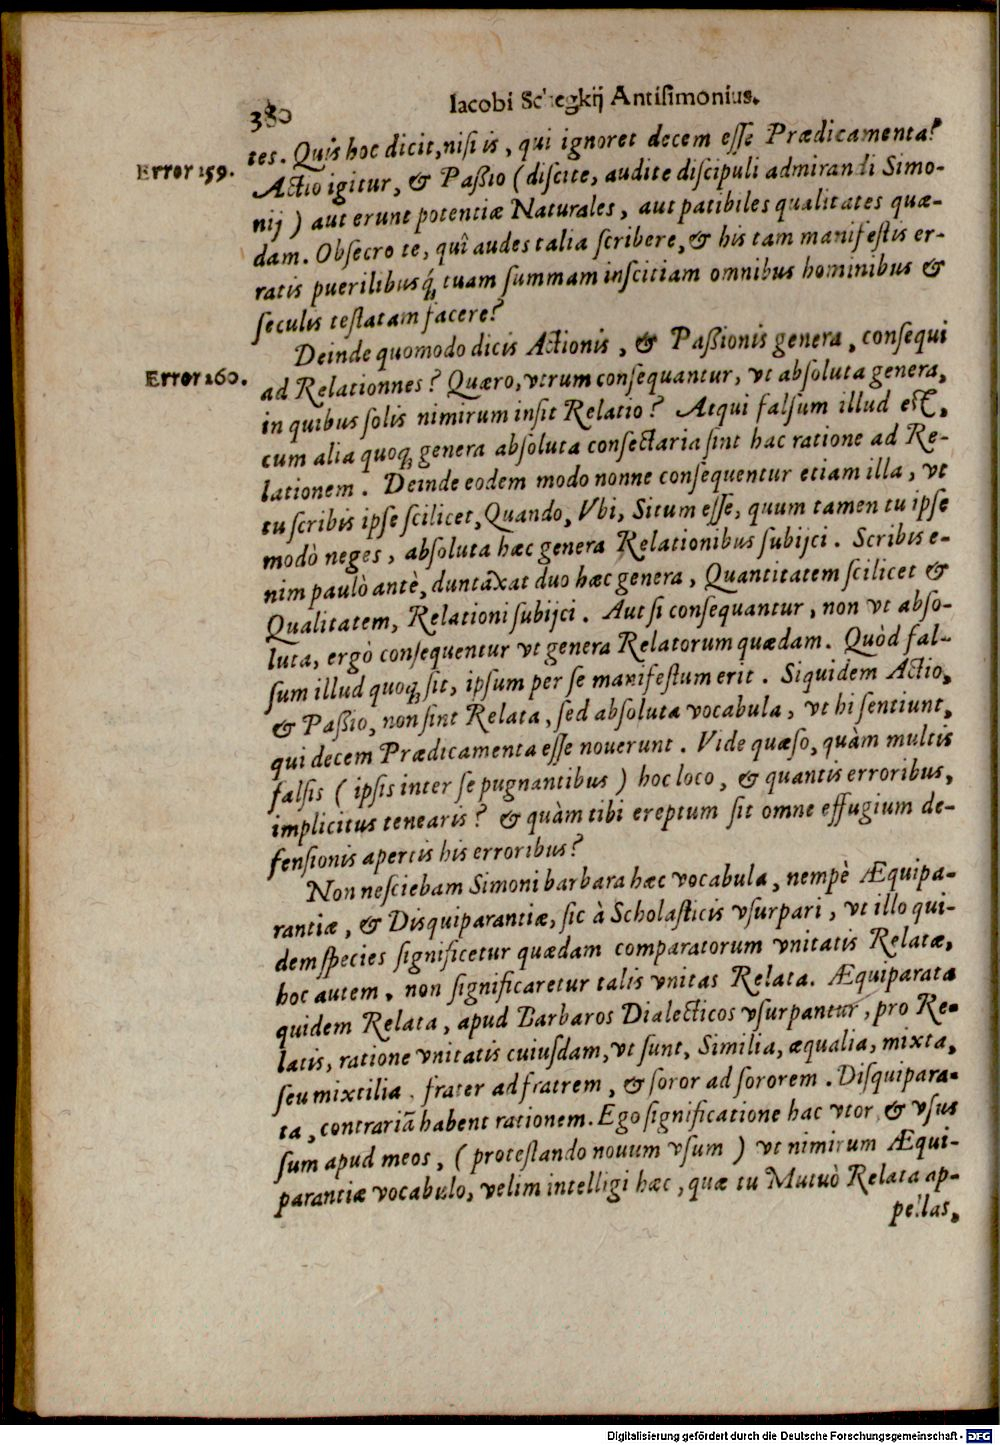 380
Iacobi Schegkij Antisimonius.
tes. Quis hoc dicit, nisi is, qui ignoret decem esse Prædicamenta?
Error 159.
Actio igitur, & Paßio (discite, audite discipuli admirandi Simo-
nij) aut erunt potentiæ Naturales, aut patibiles qualitates quæ-
dam. Obsecro te, quî audes talia scribere, & his tam manifestis er-
ratis puerilibusq́; tuam summam inscitiam omnibus hominibus &
seculis testatam facere?
Deinde quomodo dicis Actionis, & Paßionis genera, consequi
Error 160.
ad Relationnes? Quæro, vtrum consequantur, vt absoluta genera,
in quibus solis nimirum insit Relatio? Atqui falsum illud est,
cum alia quoq; genera absoluta consectaria sint hac ratione ad Re-
lationem. Deinde eodem modo nonne consequentur etiam illa, vt
tu scribis ipse scilicet, Quando, Vbi, Situm esse, quum tamen tu ipse
modò neges, absoluta hæc genera Relationibus subijci. Scribis e-
nim paulò antè, duntaxat duo hæc genera, Quantitatem scilicet &
Qualitatem, Relationi subijci. Aut si consequantur, non vt abso-
luta, ergò consequentur vt genera Relatorum quædam. Quòd fal-
sum illud quoq; sit, ipsum per se manifestum erit. Siquidem Actio,
& Paßio, non sint Relata, sed absoluta vocabula, vt hi sentiunt,
qui decem Prædicamenta esse nouerunt. Vide quæso, quàm multis
falsis (ipsis inter se pugnantibus) hoc loco, & quantis erroribus,
implicitus tenearis? & quàm tibi ereptum sit omne effugium de-
fensionis apertis his erroribus?
Non nesciebam Simoni barbara hæc vocabula, nempè Æquipa-
rantiæ, & Disquiparantiæ, sic à Scholasticis vsurpari, vt illo qui-
dem species significetur quædam comparatorum vnitatis Relatæ,
hoc autem, non significaretur talis vnitas Relata. Æquiparata
quidem Relata, apud Barbaros Dialecticos vsurpantur, pro Re-
latis, ratione vnitatis cuiusdam, vt sunt, Similia, æqualia, mixta,
seu mixtilia, frater ad fratrem, & soror ad sororem. Disquipara-
ta, contrariā habent rationem. Ego significatione hac vtor, & vsus
sum apud meos, (protestando nouum vsum) vt nimirum Æqui-
parantiæ vocabulo, velim intelligi hæc, quæ tu Mutuò Relata ap-
pellas,
Digitalisierung gefördert durch die Deutsche Forschungsgemeinschaft - DFG